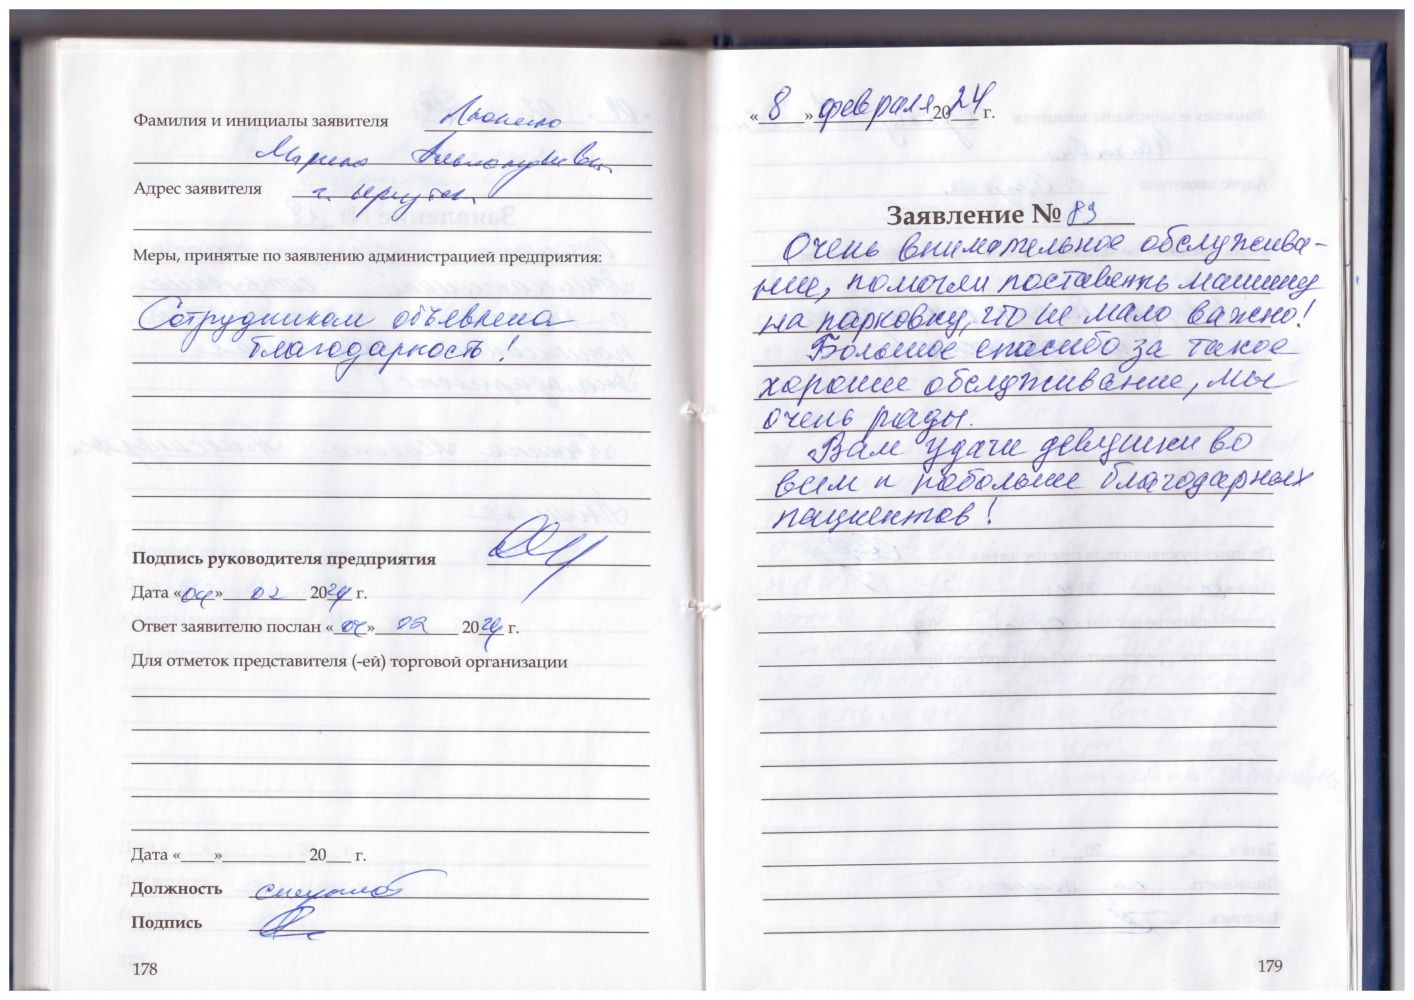 Фамилия и инициалы заявителя
Марина Александровна
Адрес заявителя г. Иркутск
Меры, принятые по заявлению администрацией предприятия:
Сотрудникам объявлена
благодарность!
Подпись руководителя предприятия
Дата «04» 02 2024 г.
Ответ заявителю послан «04» 02 2024 г.
Для отметок представителя (-ей) торговой организации
Дата «____»__________ 20___ г.
Должность специалист
Подпись
178
«8» февраля 2024 г.
Заявление № 83
Очень внимательное обслужива-
ние, помогли поставить машину
на парковку, что не мало важно!
Большое спасибо за такое
хорошее обслуживание, мы
очень рады.
Вам удачи девушки во
всем и побольше благодарных
пациентов!
179